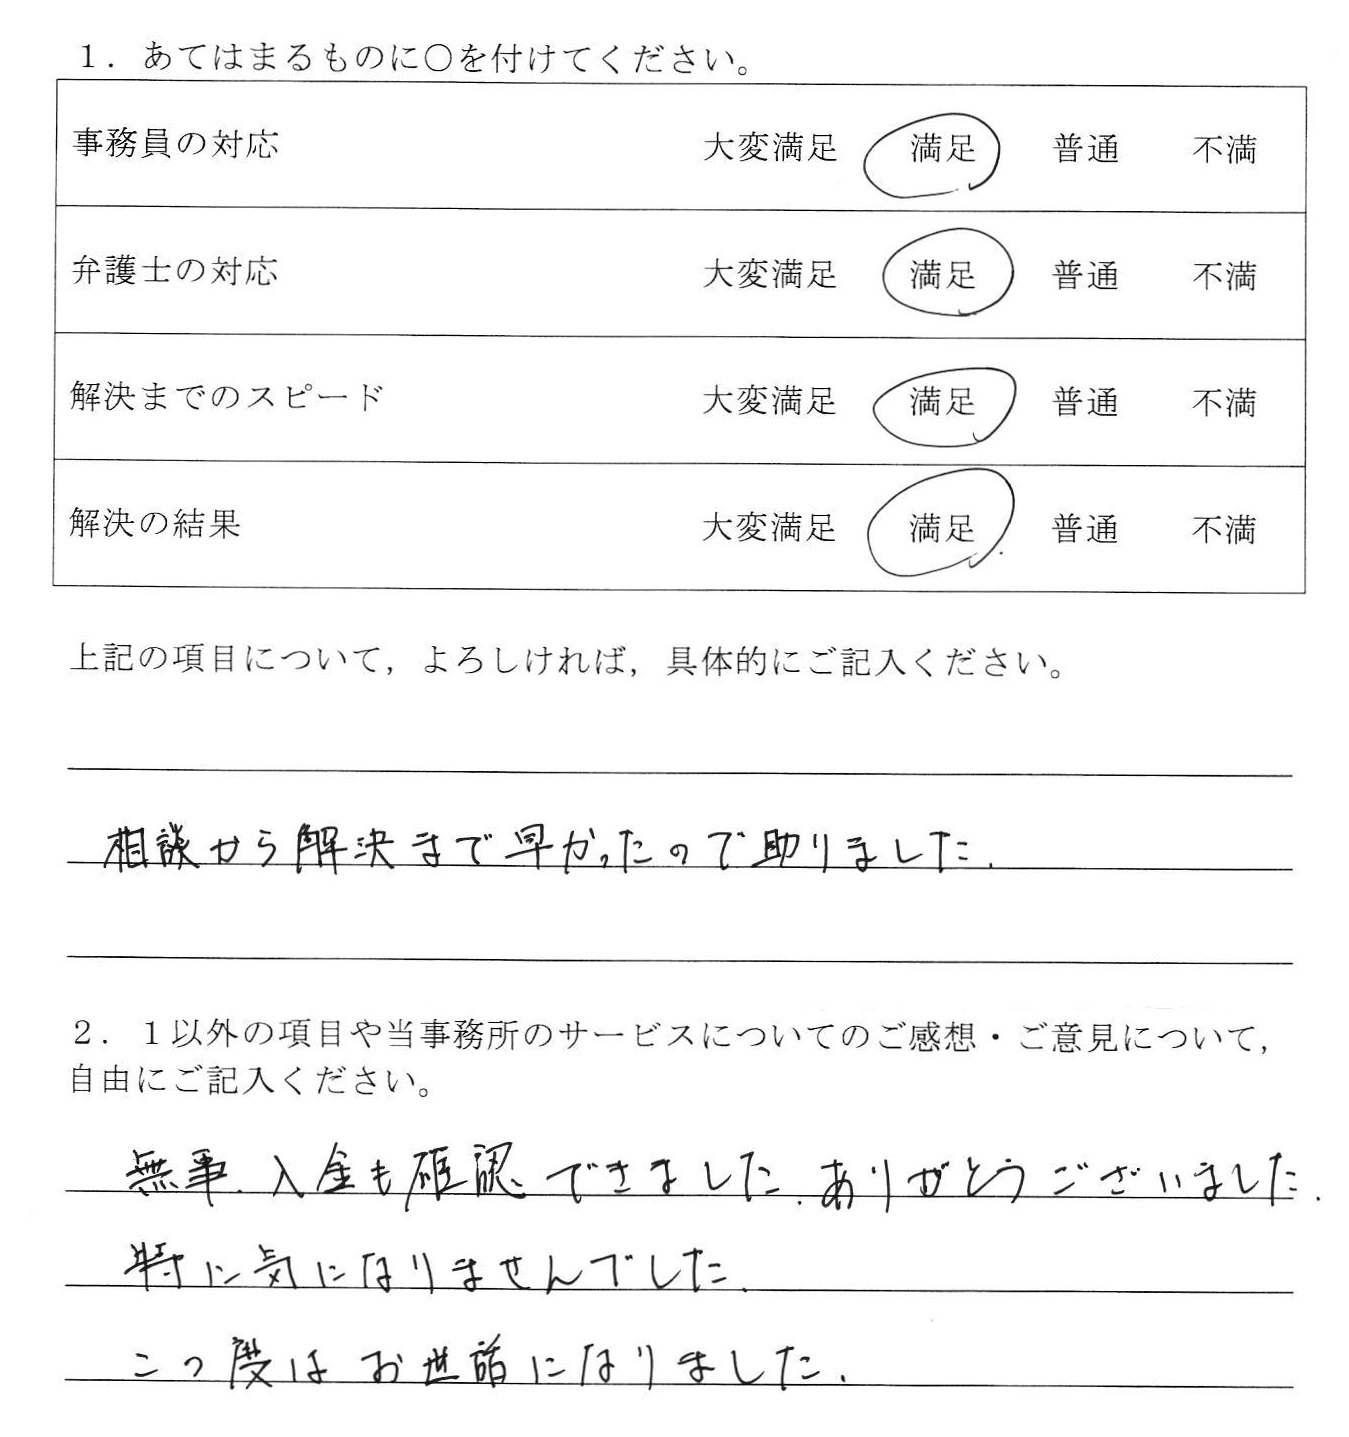 1．あてはまるものに〇を付けてください。
事務員の対応 大変満足 満足 普通 不満
弁護士の対応 大変満足 満足 普通 不満
解決までのスピード 大変満足 満足 普通 不満
解決の結果 大変満足 満足 普通 不満
上記の項目について，よろしければ，具体的にご記入ください。
相談から解決まで早かったので助りました.
2．1以外の項目や当事務所のサービスについてのご感想・ご意見について，
自由にご記入ください。
無事、入金も確認できました.ありがとうございました.
特に気になりませんでした.
この度はお世話になりました.